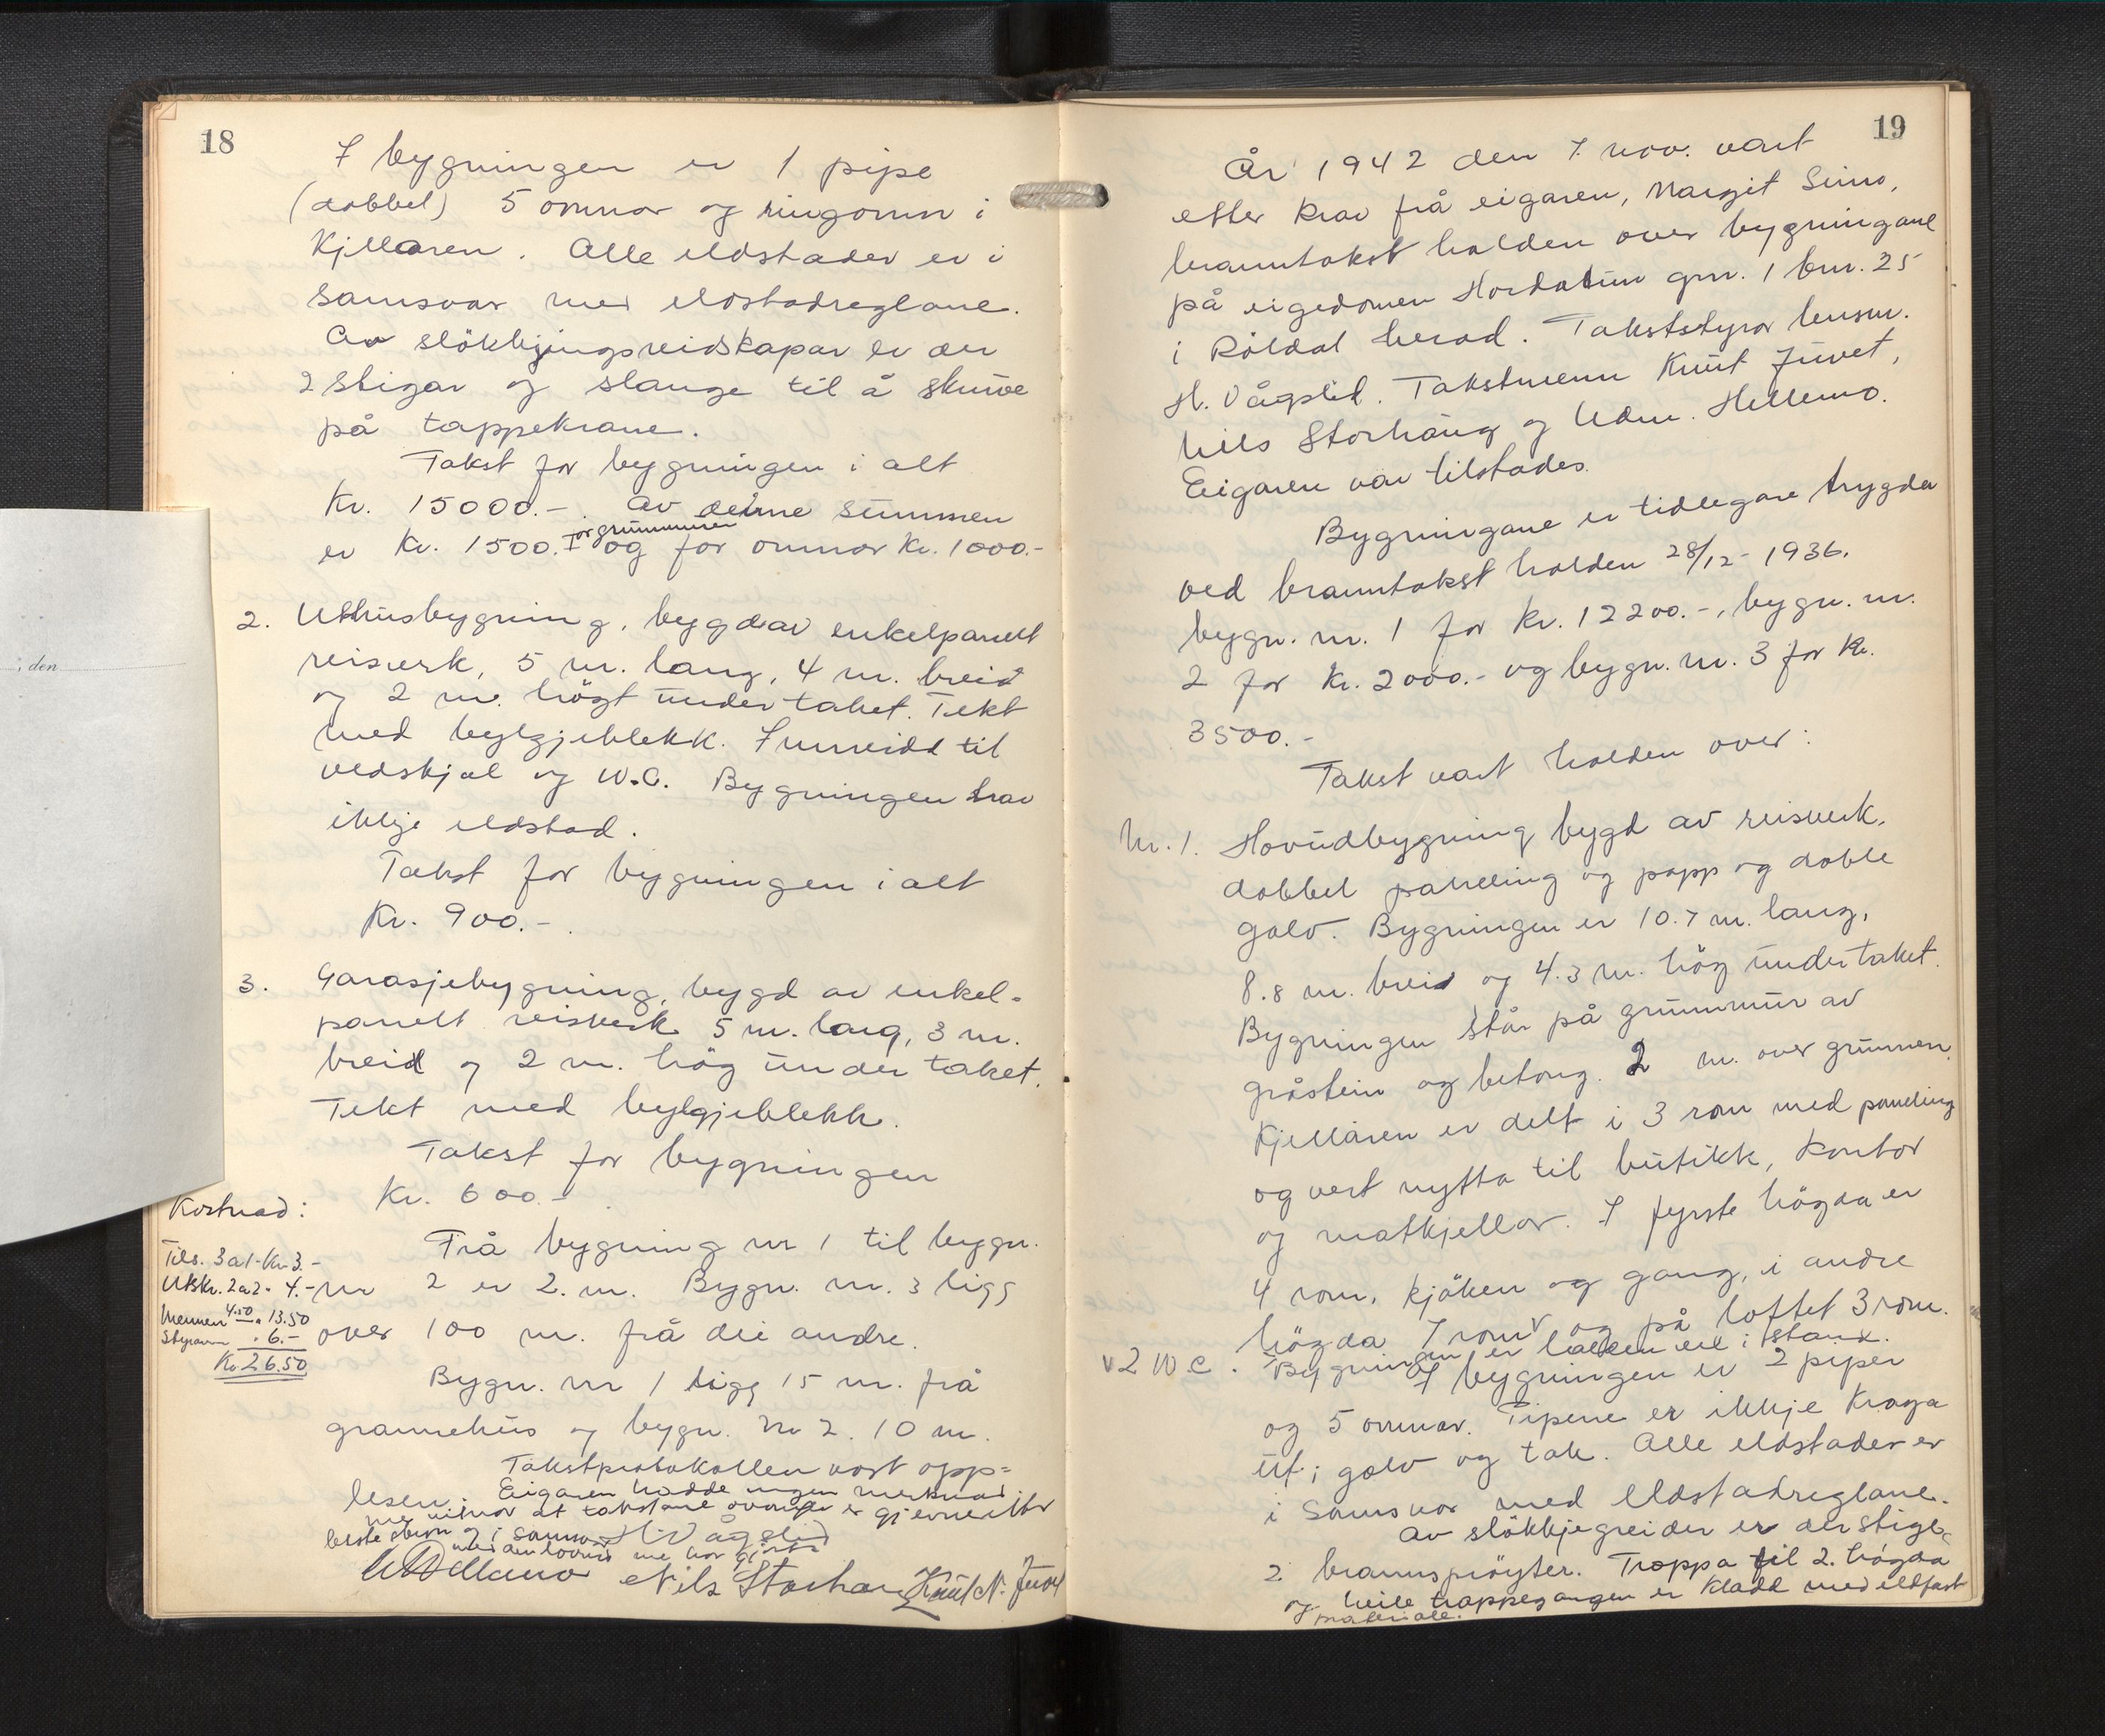 18
I bygningen er 1 pipe
(dobbel) 5 omnar og ringomn i
Kjellaren. Alle eldstader er i
samsvar med eldstadreglane.
Av slökkjingsreidskapar er der
2 stigar og slange til å skruve
på tappekrane.
Takst for bygningen i alt
Kr. 15000.-. Av denne summen
er Kr. 1500.- for grunnmuren og for omnar Kr. 1000.-
2. Uthusbygning, bygd av enkelpanelt
reisverk, 5 m. lang, 4 m. breid
og 2 m. högt under taket. Tekt
med bylgjeblekk. Innreidd til
vedskjul og W.C. Bygningen har
ikkje eldstad.
Takst for bygningen i alt
Kr. 900.-
3. Garasjebygning, bygd av enkel-
panelt reisverk 5 m. lang, 3 m.
breid og 2 m. hög under taket.
Tekt med bylgjeblekk.
Takst for bygningen
Kr. 600.-
Frå bygning nr 1 til bygn.
nr 2 er 2. m. Bygn. nr. 3 ligg
over 100 m. frå dei andre.
Bygn. nr 1 ligg 15 m. frå
grannehus og bygn. Nr 2. 10 m.
Takstprotokollen vart opp=
lesen. Eigaren hadde ingen merknad
me vitnar at takstane ovanfor er gjevne etter
beste skjøn og i samsvar
med den lovnad me har gjort
H Vågslid
Nils Storhaug Knut N. Juvet
Kostnad:
Tils. 3 a 1 - Kr 3.-
Utskr. 2 a 2 - 4.-
Mennen 4.50 " 13.50
Styraren " 6.-
Kr 26.50
, den
19
År 1942 den 7. nov. vart
etter krav frå eigaren, Margit Seim,
branntakst halden over bygningane
på eigedomen Hordatun gnr. 1 bnr. 25
i Röldal herad. Takststyrar lensm.
H. Vågslid. Takstmenn Knut Juvet,
Nils Storhaug og Udm. Hellemo.
Eigaren var tilstades.
Bygningane er tidlegare trygda
ved branntakst halden 28/12 - 1936.
bygn. nr. 1 for kr. 12200.-, bygn. nr.
2 for kr. 2000.- og bygn. nr. 3 for kr.
3500.-
Takst vart halden over:
Nr. 1. Hovudbygning bygd av reisverk,
dobbel paneling og papp og doble
golv. Bygningen er 10.7 m. lang,
8.8 m. breid og 4.3 m. hög under taket.
Bygningen står på grunnmur av
gråstein og betong. 2 m. over grunnen.
Kjellaren er delt i 3 rom med paneling
og vert nytta til butikk, kontor
og matkjellar. I fyrste högda er
4 rom, kjöken og gang, i andre
högda 7 rom v og på loftet 3 rom.
v 2 W.C. Bygningen er halden vel i stand.
I bygningen er 2 piper
og 5 omnar. Pipene er ikkje kraga
ut i golv og tak. Alle eldstader er
i samsvar med Eldstadreglane.
Av slökkjegreider er der stige,
2 brannspröyter. Trappa til 2. högda
og heile trappegangen er kledd med eldfast
materiale.